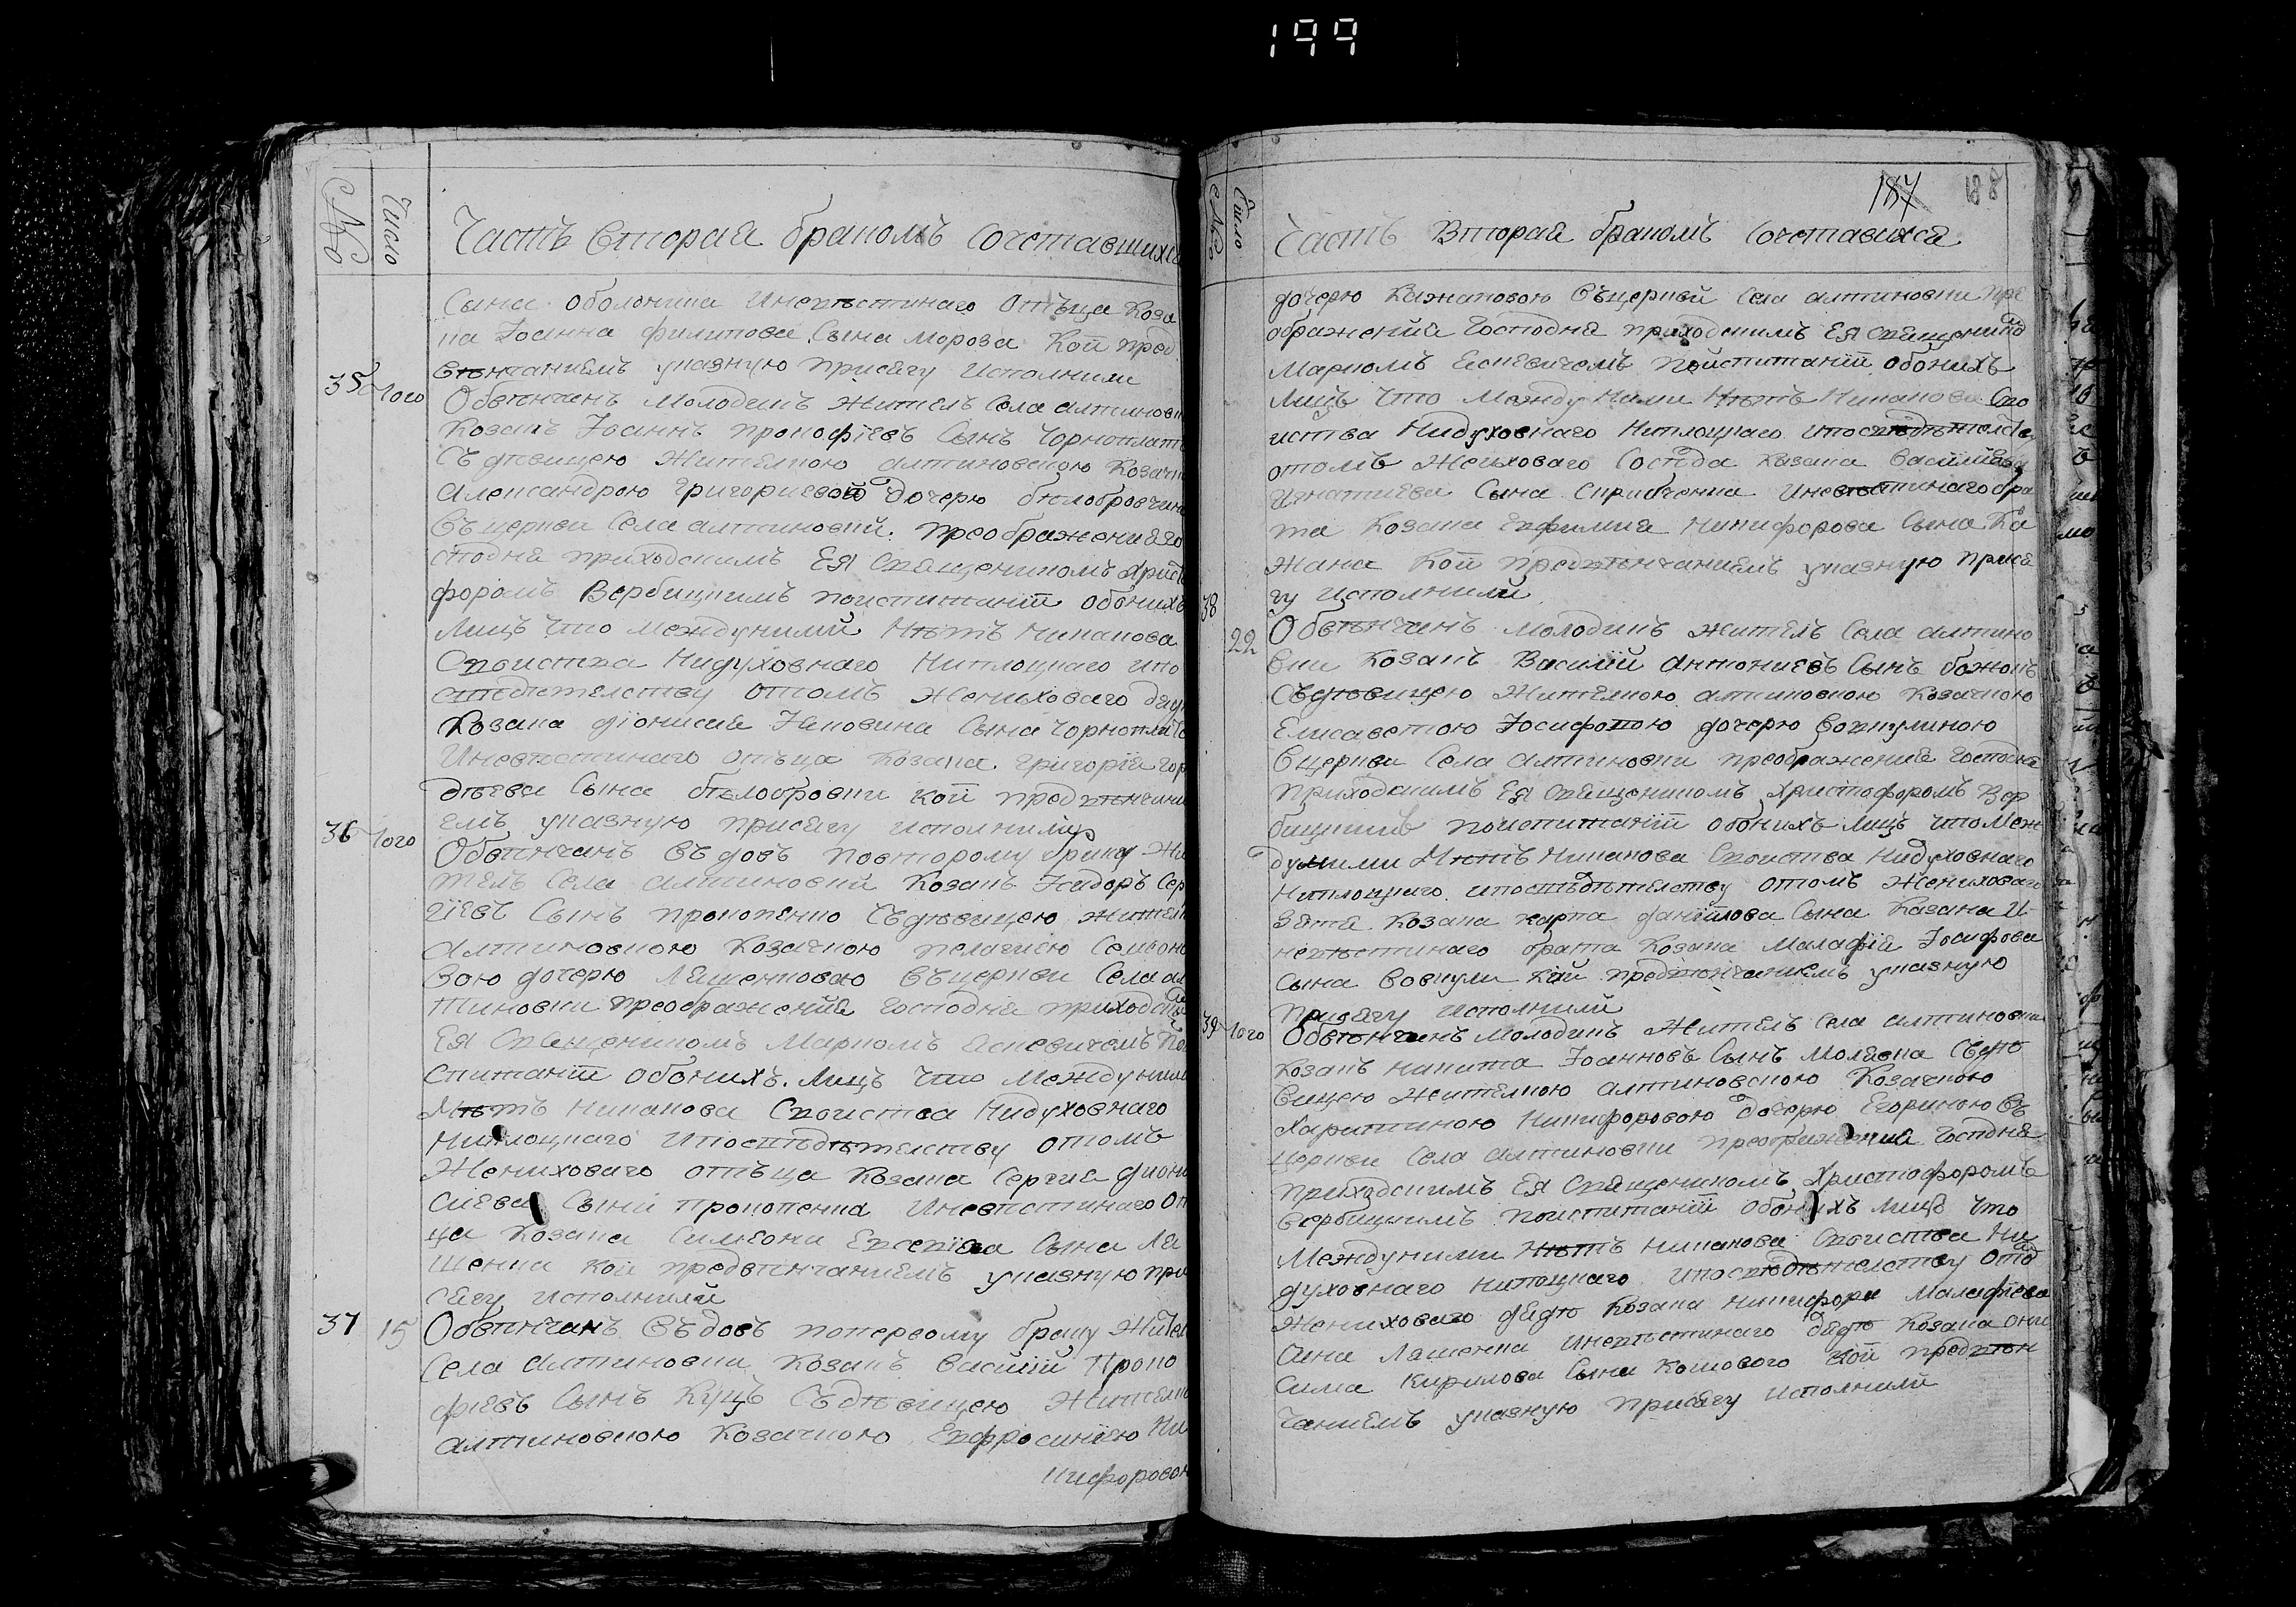 199
№
Число
Часть вторая бракомъ сочетавшихся
Сына оболоника иневѣстинаго отъца Коза
ка Іоанна филипова Сына Мороза кои пред
вѣнчаниемъ указную присягу исполнили
35 того Обвѣнчанъ молодикъ Жителъ Села алтиновк
Козакъ Іоаннъ прокофіевъ Сынъ Чорноплат
Съ дѣвицею жителкою алтиновскою Козачк
александрою григориевой дочерю бѣлобровчин
Въцеркви Села алтиновки преображения го
сподня приходскимъ Ея Священикомъ Христ
форомъ Вербицкимъ поиспитаніи обоихъ
Лицъ что междуними Нѣтъ Никакова
Своиства Нидуховнаго Ниплоцкаго ипо
свѣдѣтелству отомъ Жениховаго дяд
Козака діонисия Сына Чорноплат
Иневѣстинаго отъца Козака григорія гор
дѣева Сына бѣлобровки кои предвѣнчани
емъ указную присягу исполнили
36 того Обвѣнчанъ въдовъ повторому браку Жи
телъ Села алтиновки Козакъ Исидоръ Сер
гіевъ Сынъ прокопенко Съдѣвицею жител
алтиновкою Козачкою пелагиею Семіоно
вою дочерю Ляшенковою въцеркви Села ал
тиновки преображения Господня приходски
Ея Священикомъ Маркомъ Яскевичемъ По
спитаніи обоихъ Лицъ что междуними
Нѣтъ никакова Своиства Нидуховнаго
Ниплоцкаго ипосвѣдѣтелству отомъ
Жениховаго отъца Козака Сергия Диони
сиева Сына Прокопенка иневѣстинаго от
ца Козака Симеона Евсевіева Сына Ля
шенка кои предвѣнчаниемъ указную при
сягу исполнили
37 15 Обвѣнчанъ въдовъ поперсому браку Жител
Села алтиновки Козакъ Василій Проко
фиевъ Сынъ Куцъ Съдѣвицею Жителк
алтиновкою Козачкою Евфросиніею Ни
кифоровою
187 188
№
Число
Часть Вторая бракомъ Сочетавихся
дочерю Кажановою Въцеркви Села алтиновки пре
ображения Господня приходскимъ Ея Священико
Маркомъ Яскевичемъ поиспитаніи обоихъ
Лицъ что Между Ними Нѣтъ Никакова Сво
иства Нидуховнаго Ниплоцкаго ипосвѣдѣтелст
отомъ Жениховаго Сосѣда Казака Василия
Игнатиева Сына Скрибченка Иневѣстинаго бра
та Козака Евфимия Никифорова Сына Ка
жана Кои предвѣнчаниемъ указную прися
гу исполнили
38 22 Обвѣнчанъ молодикъ жителъ Села алтино
вки Козакъ Василій антониевъ Сынъ божокъ
Съдѣвицею Жителкою алтиновкою Козачкою
Елисаветою Іосифовою дочерю Вовкулиною
Вцеркви Села алтиновки преображения Господня
Приходскимъ Ея Священикомъ Христофоромъ Вер
бицкимъ поиспитаніи обоихъ лицъ что меж
дуними Нѣтъ Никакова Своиства Нидуховнаго
Ниплоцкаго ипосвѣдѣтелству отомъ Жениховаго
Зятя Козака карпа даніилова Сына Казана И
невѣстинаго брата Козака Малафія Іосифова
Сына Вовкули кои предвѣнчаниемъ указную
присягу исполнили
39 того Обвѣнчанъ Молодикъ Жителъ Села алтиновки
Козакъ никита Іоанновъ Сынъ Молявка Съдѣ
вицею Жителкою алтиновскою Козачкою
Харитиною Никифоровою дочерю Егоркиною Въ
церкви Села алтиновки преображения Господня
приходскимъ Ея Священикомъ Христофоромъ
Вербицкимъ поиспитаніи обоихъ лицъ что
Междуними нѣтъ никакова Своиства Ни
духовнаго ниплоцкаго ипосвѣдѣтелству ото
Жениховаго дядю Козака никифора Малафіева
Сина Ляшенка иневѣстинаго дядю Козака они
сима Кирилова Сына Кошового кои предвѣн
чаниемъ указную присягу исполнили